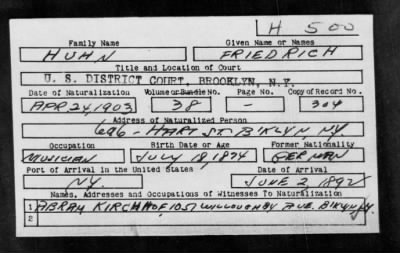 H 500
Family Name Given Name or Names
HUHN FRIEDRICH
Title and Location of Court
U. S. DISTRICT COURT, BROOKLYN, N.Y.
Date of Naturalization Volume or Bundle No. Page No. Copy of Record No.
APR 24, 1903 38 - 304
Address of Naturalized Person
696 - HART ST. BKLYN, NY.
Occupation Birth Date or Age Former Nationality
MUSICIAN JULY 18, 1874 GERMAN
Port of Arrival in the United States Date of Arrival
N.Y. JUNE 2 1892
Names, Addresses and Occupations of Witnesses To Naturalization
1 ABRAM KIRCHHOF 1051 WILLOUGHBY AVE. BKLYN
2